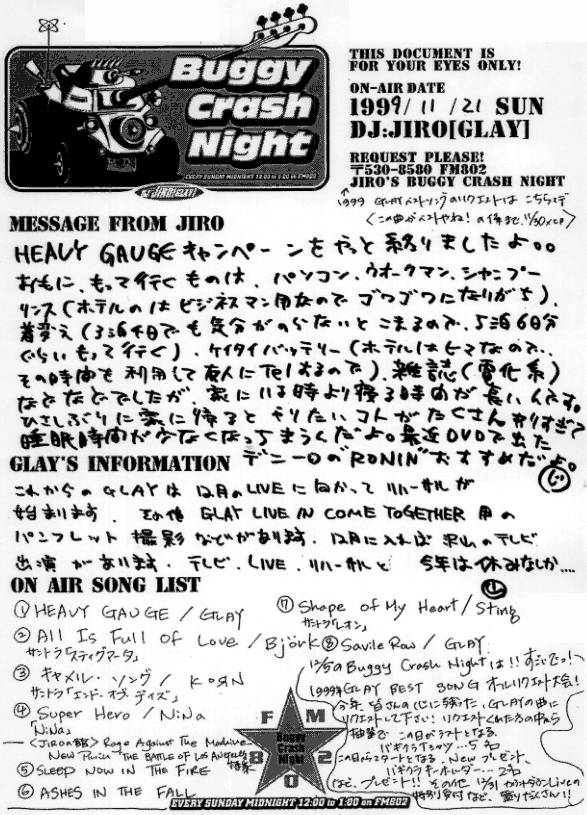 Buggy
Crash
Night
EVERY SUNDAY MIDNIGHT 12:00 to 1:00 on FM802
DJ:JIRO[GLAY]
THIS DOCUMENT IS
FOR YOUR EYES ONLY!
ON-AIR DATE
1999/11/21 SUN
DJ:JIRO[GLAY]
REQUEST PLEASE!
〒530-8580 FM802
JIRO'S BUGGY CRASH NIGHT
1999 GLAYベストソングのリクエストは こちらまで
〈この曲がベストやね!の1件まで、11/30〆切〉
MESSAGE FROM JIRO
HEAVY GAUGE キャンペーンをやっと終りましたよ。。
おもに、もって行くものは、パソコン、ウオークマン、シャンプー
リンス(ホテルのはビジネスマン用なのでゴワゴワになりがち)、
着変え(3泊4日でも気分がのらないとこまるので、5泊6日分
ぐらいもって行く)、ケイタイバッテリー(ホテルはヒマなので、
その時間を利用して友人にTELするので)、雑誌(電化系)
などなどでしたが、家にいる時より寝る時間が長いんです。
ひさしぶりに家に帰るとやりたいコトがたくさん有りすぎて
睡眠時間が少なくなっちまうんだよ。最近DVDで出た
GLAY'S INFORMATION デニーロの"RONIN"おすすめだよ。
これからのGLAYは12月のLIVEに向かってリハーサルが
始まります。その他 GLAY LIVE IN COME TOGETHER 用の
パンフレット撮影などがあります。12月に入れば沢山のテレビ
出演があります。テレビ、LIVE、リハーサルと 今年は休みなしか....
ON AIR SONG LIST
① HEAVY GAUGE / GLAY
② All Is Full Of Love / Björk
サントラ「スティグマータ」
③ キャメル・ソング / KoЯN
サントラ「エンド・オブ・デイズ」
④ Super Hero / NiNa
「NiNa」
〈JIROの館〉 Rage Against The Machine
New Album "THE BATTLE OF LOS ANGELES"特集
⑤ SLEEP NOW IN THE FIRE
⑥ ASHES IN THE FALL
⑦ Shape of My Heart / Sting
サントラ「レオン」
⑧ Savile Row / GLAY
12/5のBuggy Crash Nightは!!すごいでっ!
1999年 GLAY BEST SONG オールリクエスト大会!
今年、皆さんの心に残った、GLAYの曲に
リクエストして下さい!リクエストくれた方の中から
抽選で この日がラストとなる、
バギクラTシャツ...5名
この日からスタートとなる、Newプレゼント、
バギクラキーホルダー...2名
など、プレゼント!! その他 12/31 カウントダウンLiveの
など、盛りだくさん!!
FM
802
Buggy
Crash
Night
EVERY SUNDAY MIDNIGHT 12:00 to 1:00 on FM802